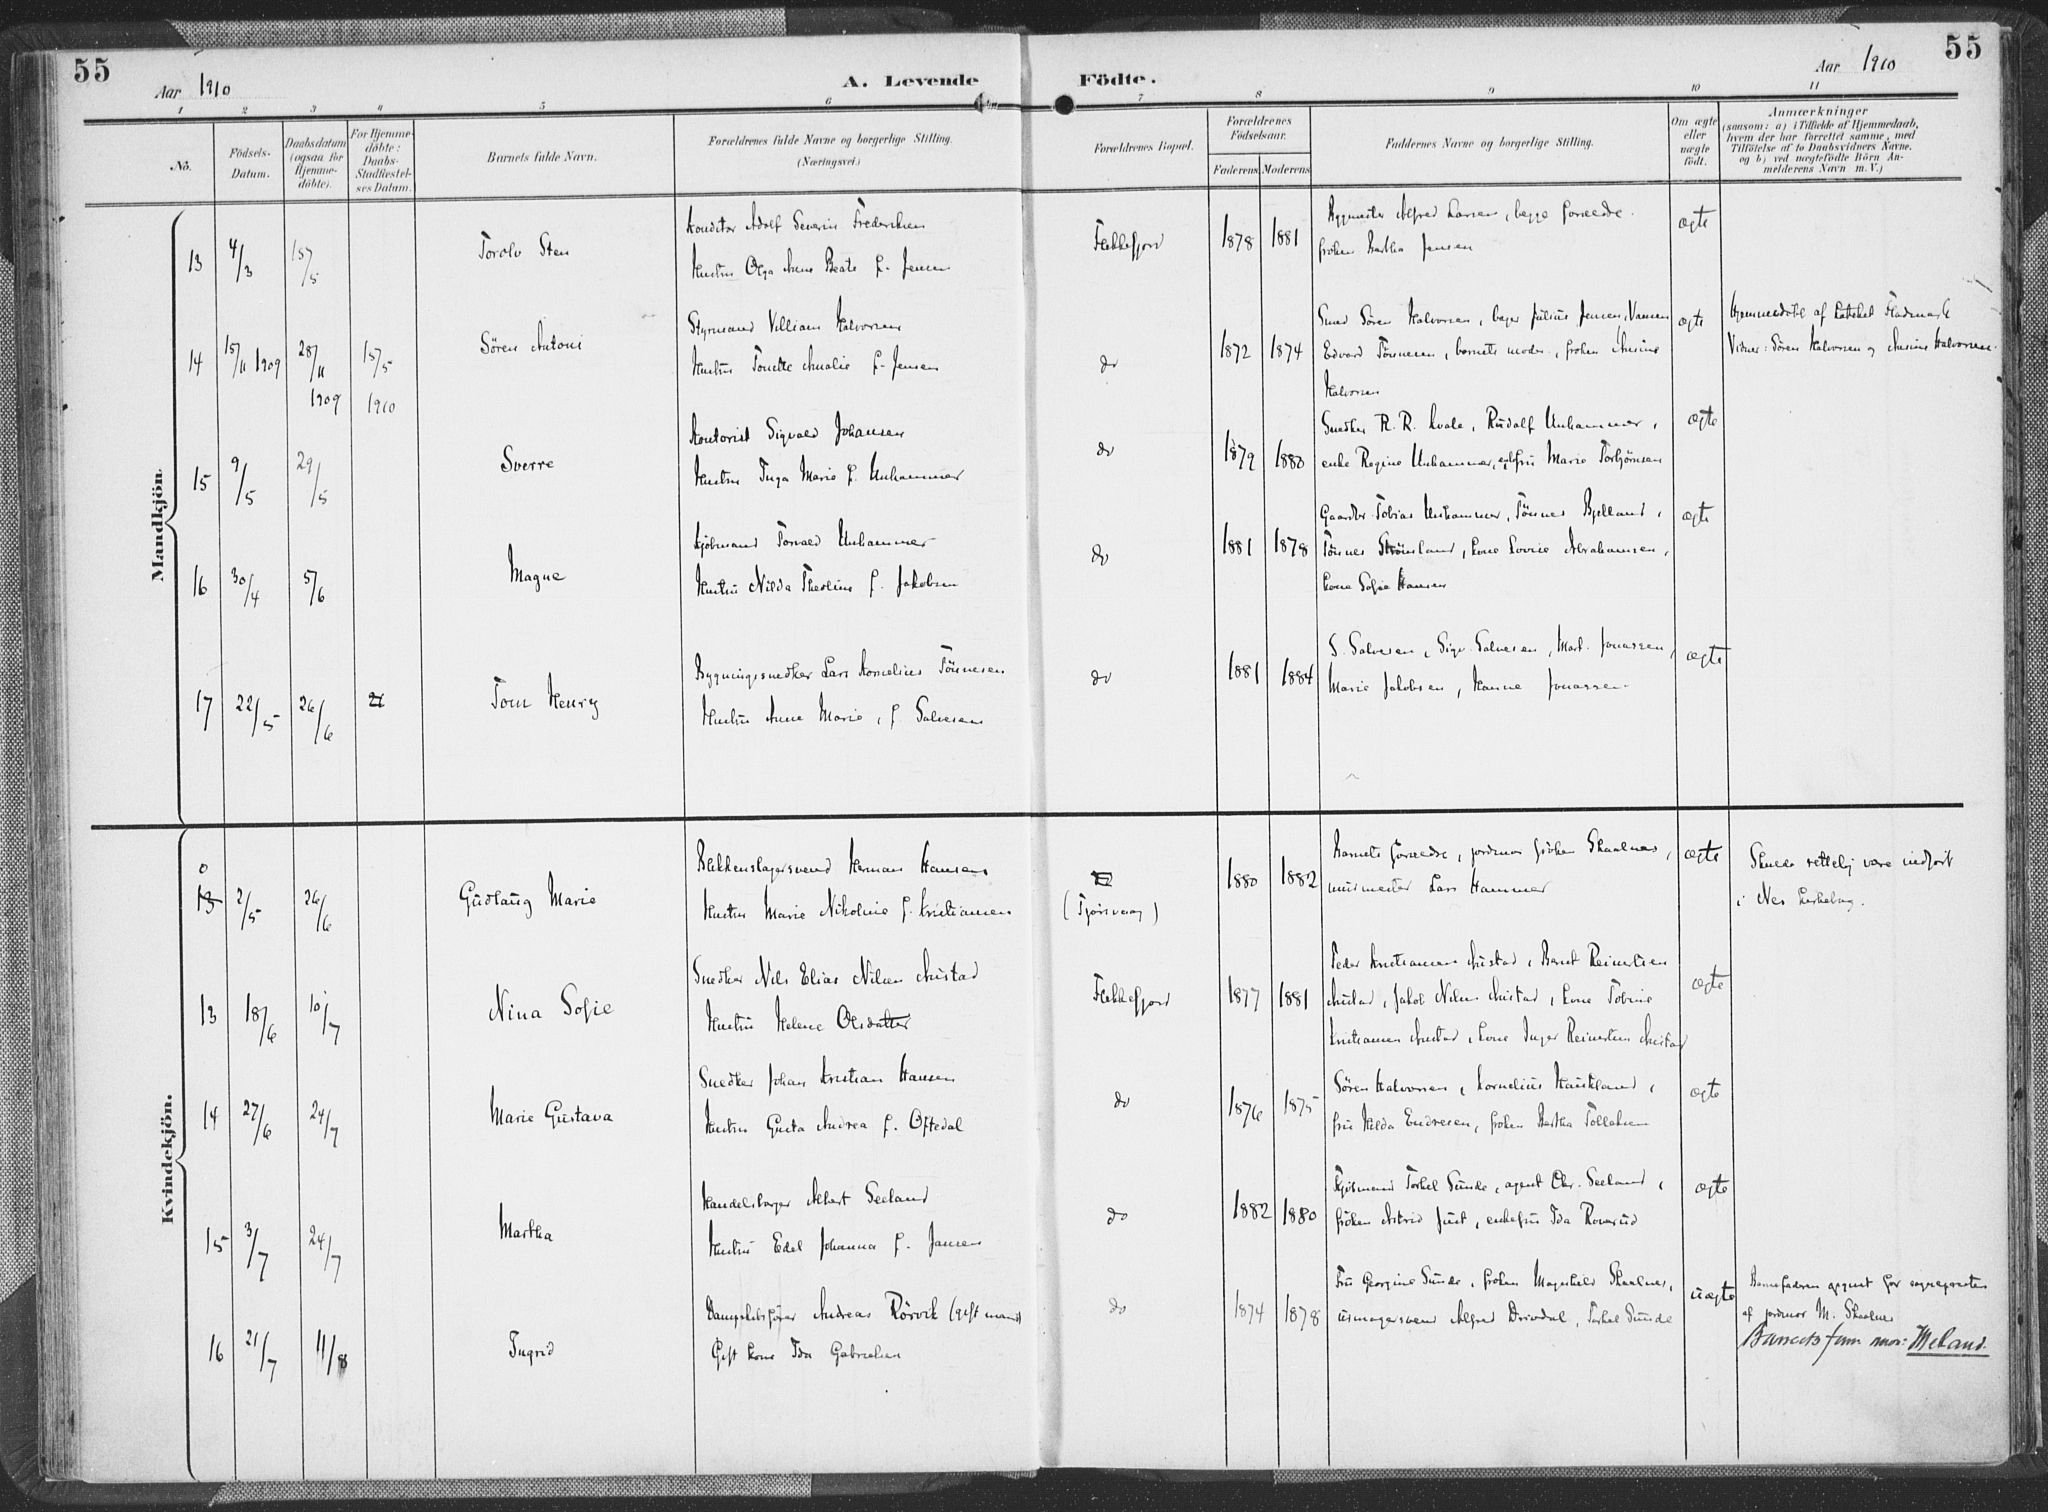 55
Aar 1910
A. Levende Födte.
Aar 1910
55
1 2 3 4 5 6 7 8 9 10 11
No.
Födsels-Datum.
Daabsdatum (ogsaa for Hjemme-döbte).
For Hjemme-döbte: Daabs-Stadfæstel-ses Datum.
Barnets fulde Navn.
Forældrenes fulde Navne og borgerlige Stilling. (Næringsvei.)
Forældrenes Bopæl.
Forældrenes Födselsaar.
Faderens Moderens
Faddernes Navne og borgerlige Stilling.
Om ægte eller uægte födt.
Anmærkninger
(saasom: a) i Tilfælde af Hjemmedaab, hvem der har forrettet samme, med Tilföielse af to Daabsvidners Navne. og b) ved uægtefödte Börn An-melderens Navn m. V.)
Mandkjön.
13 4/3 15/5 Torolv Sten
Konditor Adolf Severin Frederiksen
Hustru Olga Anne Beate f. Jensen
Flekkefjord 1878 1881
Bygmester Alfred Larsen, begge forældre.
fröken Bertha Jensen
ægte
14 15/11 1909 28/11 1909 15/5 1910 Sören Antoni
Styrmand Villiam Halvorsen
Hustru Tonette Amalie f. Jensen
do 1872 1874
Smed Sören Halvorsen, bager Julius Jensen,
Edvard Tönnesen, barnets moder, fröken Ansine
Halvorsen
ægte
Hjemmedöbt af
Vidner: Sören Halvorsen og Ansine Halvorsen.
15 9/5 29/5 Sverre
Kontorist Sigvald Johansen
Hustru Inga Marie f. Unhammer
do 1879 1880
Snedker R. R. Kvale, Rudolf Unhammer,
enke Regine Unhammer, Marie Torbjörnsen
ægte
16 30/4 5/6 Magne
Kjöbmand Torvald Unhammer
Hustru Nilda Theoline f. Jakobsen
do 1881 1878
Gaardbr. Tobias Unhammer, Tönnes Bjelland,
Tönnes Strömland, kone Lovise Abrahamsen,
kone Sofie Hansen
ægte
17 22/5 26/6 Tom Henry
Bygningssnedker Lars Kornelius Tönnesen
Hustru Anne Marie, f. Salvesen
do 1881 1884
S. Salvesen, Sigv. Salvesen, Mart. Jonassen,
Marie Jakobsen, Hanne Jonassen
ægte
Kvindekjön.
0
13 2/5 26/6 Gudlaug Marie
Blikkenslagersvend Herman Hansen
Hustru Marie Nikoline f. Kristiansen
(Tjörsvaag) 1880 1882
Barnets forældre, jordmor fröken Skaalnes,
murmester Lars Hammer
ægte
Skulde rettelig være indfört
i Nes kirkebog.
13 18/6 10/7 Nina Sofie
Snedker Nils Elias Nilsen Austad
Hustru Helene Olsdatter
Flekkefjord 1877 1881
Peder Kristiansen Austad, Bernt Reinertsen
Austad, Jakob Nilsen Austad, kone Tobine
Kristiansen Austad, kone Inger Reinertsen Austad
ægte
14 27/6 24/7 Marie Gustava
Snedker Johan Kristian Hansen
Hustru Gusta Andrea f. Oftedal
do 1876 1875
Sören Halvorsen, Kornelius Haukland,
fru Hilda Endresen, fröken Bertha Tollaksen
ægte
15 3/7 24/7 Martha
Handelsborger Albert Seeland
Hustru Edel Johanna f. Jansen
do 1882 1880
Kjöbmand Torkel Sunde, agent Chr. Seeland,
fröken Astrid Juul, enkefru Ida Roverud
ægte
16 21/7 11/8 Ingrid
Dampskibsförer Andreas Rörvik (gift mand)
Gift kone Ida Gabrielsen
do 1874 1878
Fru Georgine Sunde, fröken Magnhild Skaalnes,
urmagersvend Alfred Drivdal, Torkel Sunde
uægte
Barnefaderen opgivet for sognepresten
af jordmor M. Skaalnes
Barnets fam. navn: Meland.